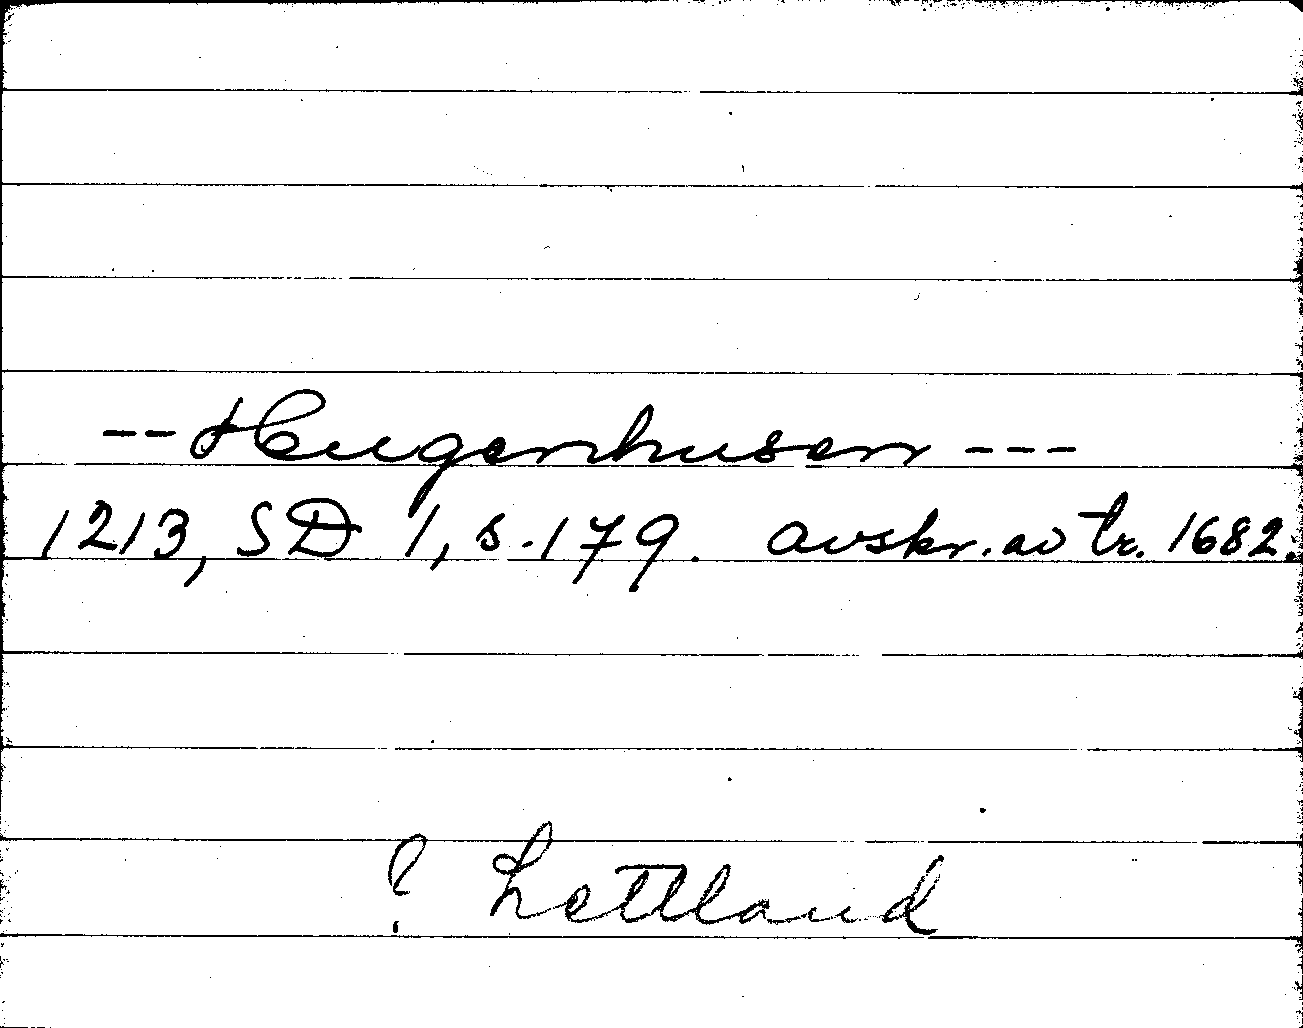 -- Hugenhusen ---
1213, SD 1, s. 179. avskr. av tr. 1682.
? Lettland